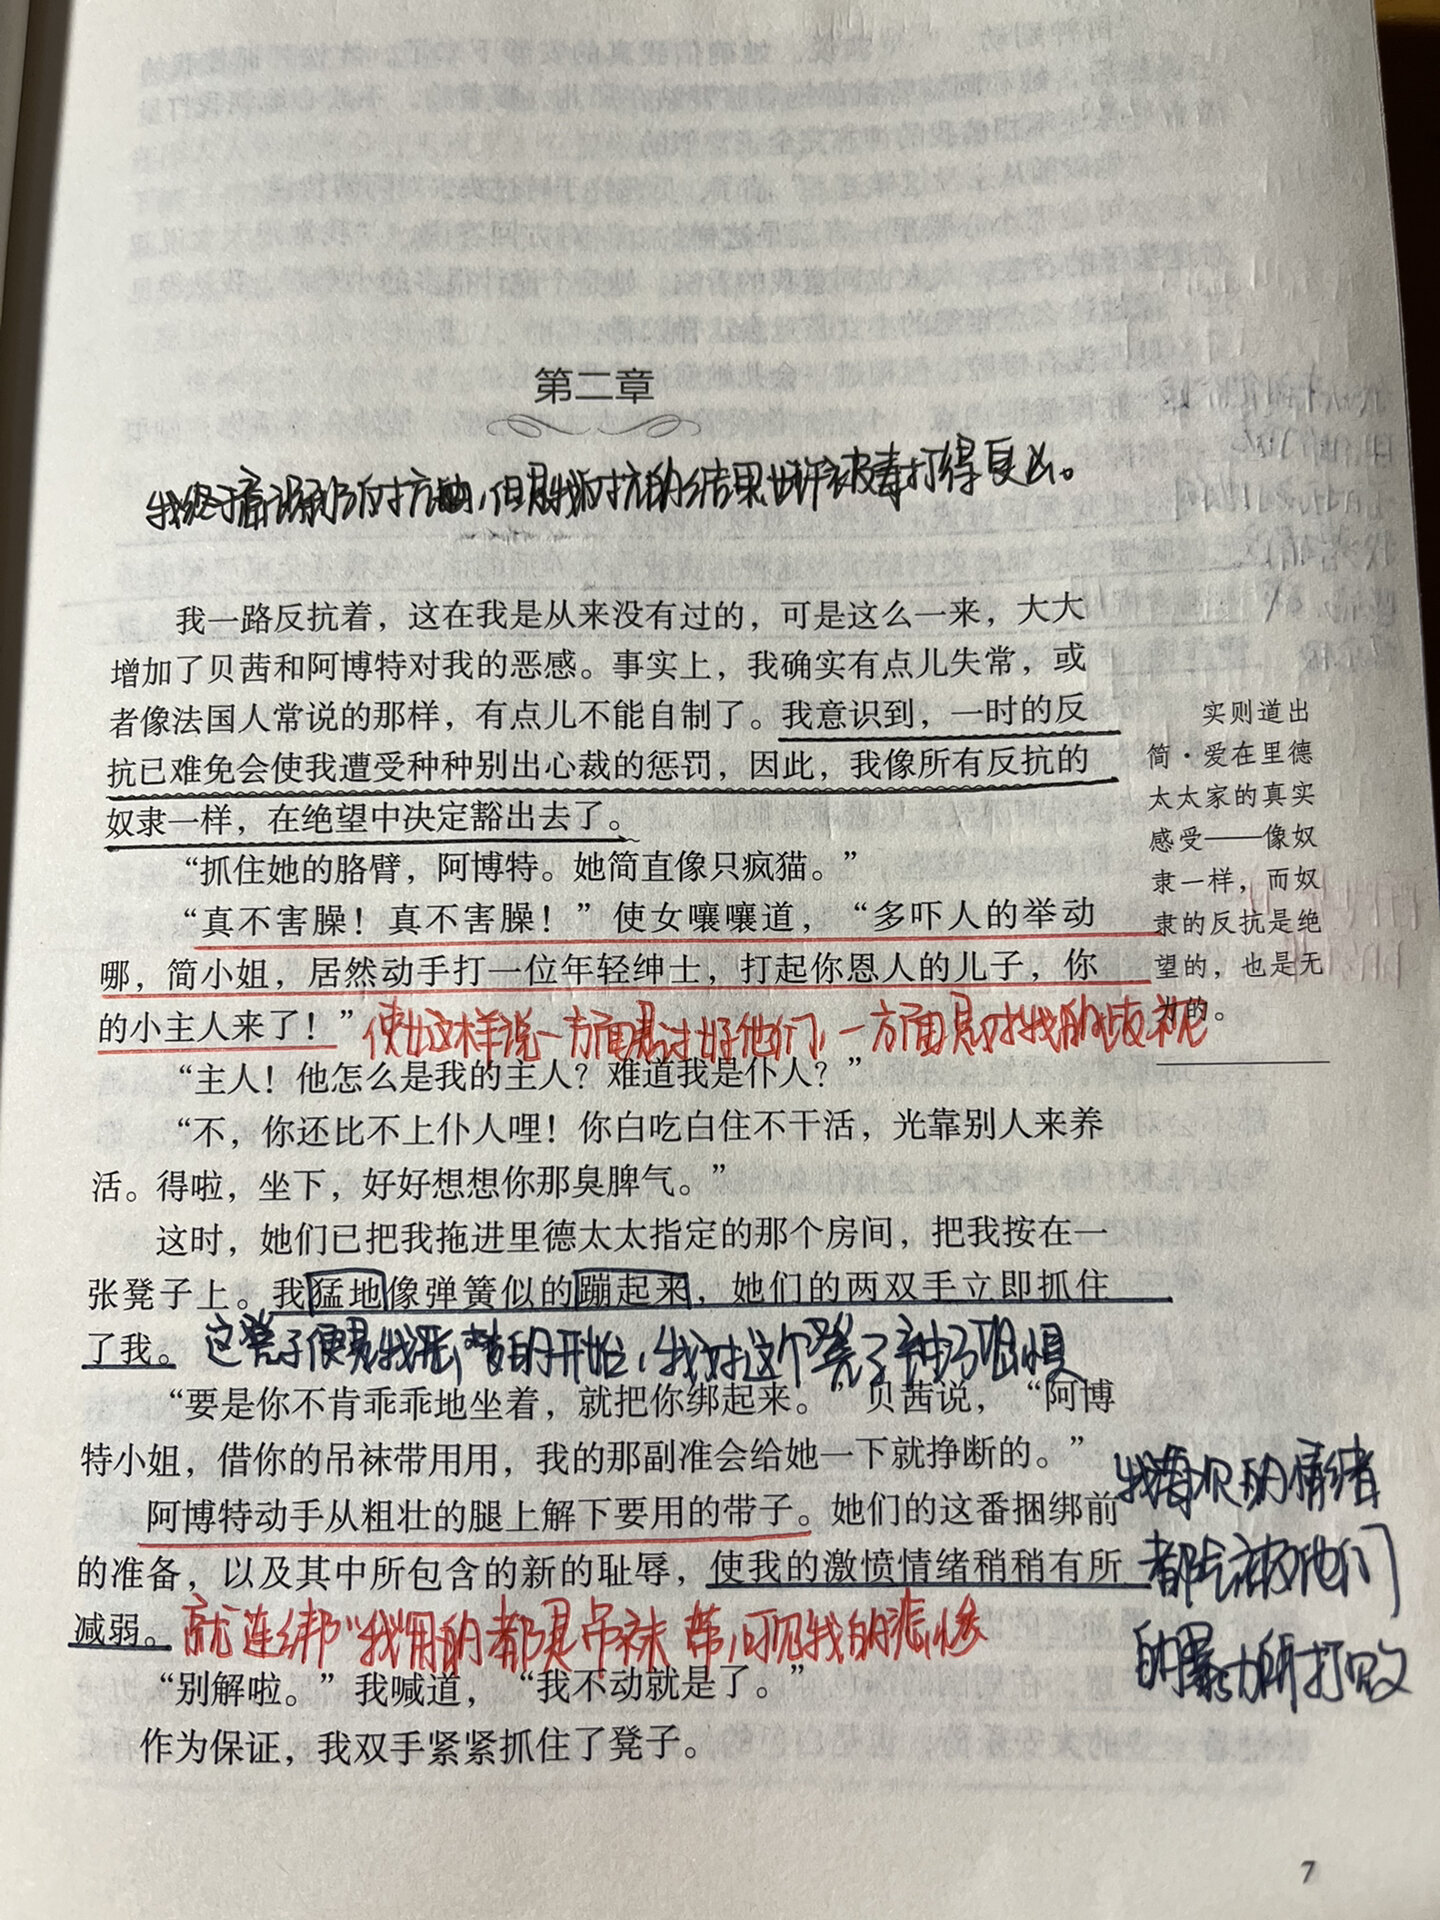 第二章
我终于意识到反抗,但是我反抗的结果也许被毒打得更凶。
我一路反抗着，这在我是从来没有过的，可是这么一来，大大
增加了贝茜和阿博特对我的恶感。事实上，我确实有点儿失常，或
者像法国人常说的那样，有点儿不能自制了。我意识到，一时的反
抗已难免会使我遭受种种别出心裁的惩罚，因此，我像所有反抗的
奴隶一样，在绝望中决定豁出去了。
实则道出
简·爱在里德
太太家的真实
感受——像奴
隶一样，而奴
隶的反抗是绝
望的，也是无
力的。
“抓住她的胳臂，阿博特。她简直像只疯猫。”
“真不害臊！真不害臊！”使女嚷嚷道，“多吓人的举动
哪，简小姐，居然动手打一位年轻绅士，打起你恩人的儿子，你
的小主人来了！”
使女这样说一方面是讨好他们,一方面是对我的歧视
“主人！他怎么是我的主人？难道我是仆人？”
“不，你还比不上仆人哩！你白吃白住不干活，光靠别人来养
活。得啦，坐下，好好想想你那臭脾气。”
这时，她们已把我拖进里德太太指定的那个房间，把我按在一
张凳子上。我猛地像弹簧似的蹦起来，她们的两双手立即抓住
了我。
这凳子便是我噩梦的开始,我对这个凳子充满了恐惧
“要是你不肯乖乖地坐着，就把你绑起来。”贝茜说，“阿博
特小姐，借你的吊袜带用用，我的那副准会给她一下就挣断的。”
阿博特动手从粗壮的腿上解下要用的带子。她们的这番捆绑前
的准备，以及其中所包含的新的耻辱，使我的激愤情绪稍稍有所
减弱。
就连绑“我”用的都是吊袜带,可见我的悲惨
我每次的情绪
都会被他们
的暴力所打败
“别解啦。”我喊道，“我不动就是了。”
作为保证，我双手紧紧抓住了凳子。
7